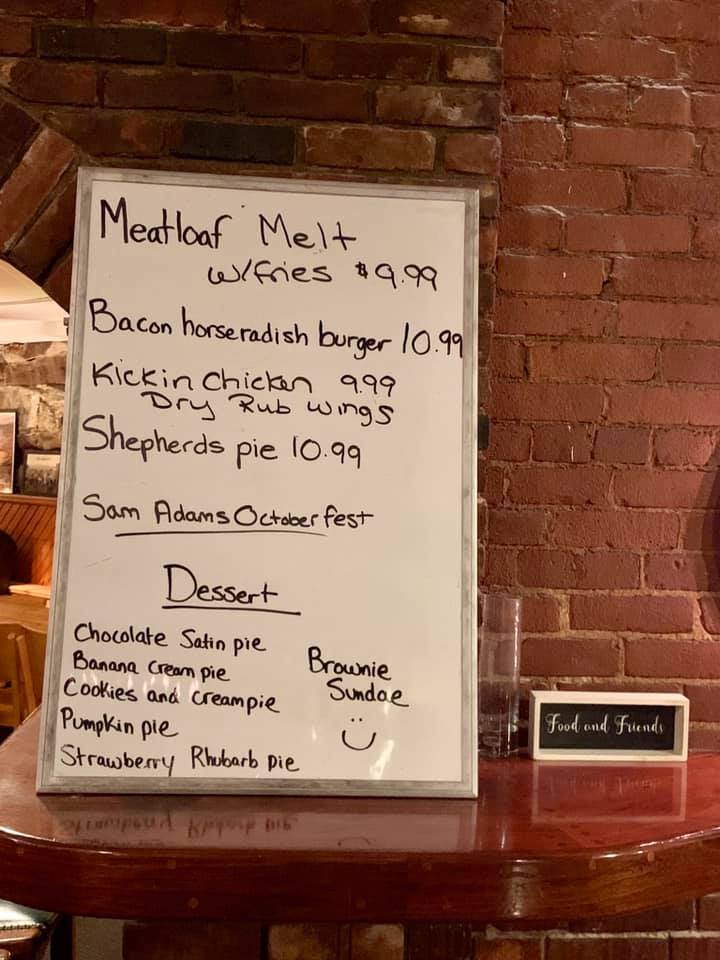 Meatloaf Melt
w/fries $9.99
Bacon horseradish burger 10.99
Kickin Chicken 9.99
Dry Rub wings
Shepherds pie 10.99
Sam Adams October fest
Dessert
Chocolate Satin pie
Banana Cream pie
Cookies and Cream pie
Pumpkin pie
Strawberry Rhubarb pie
Brownie
Sundae
Food and Friends